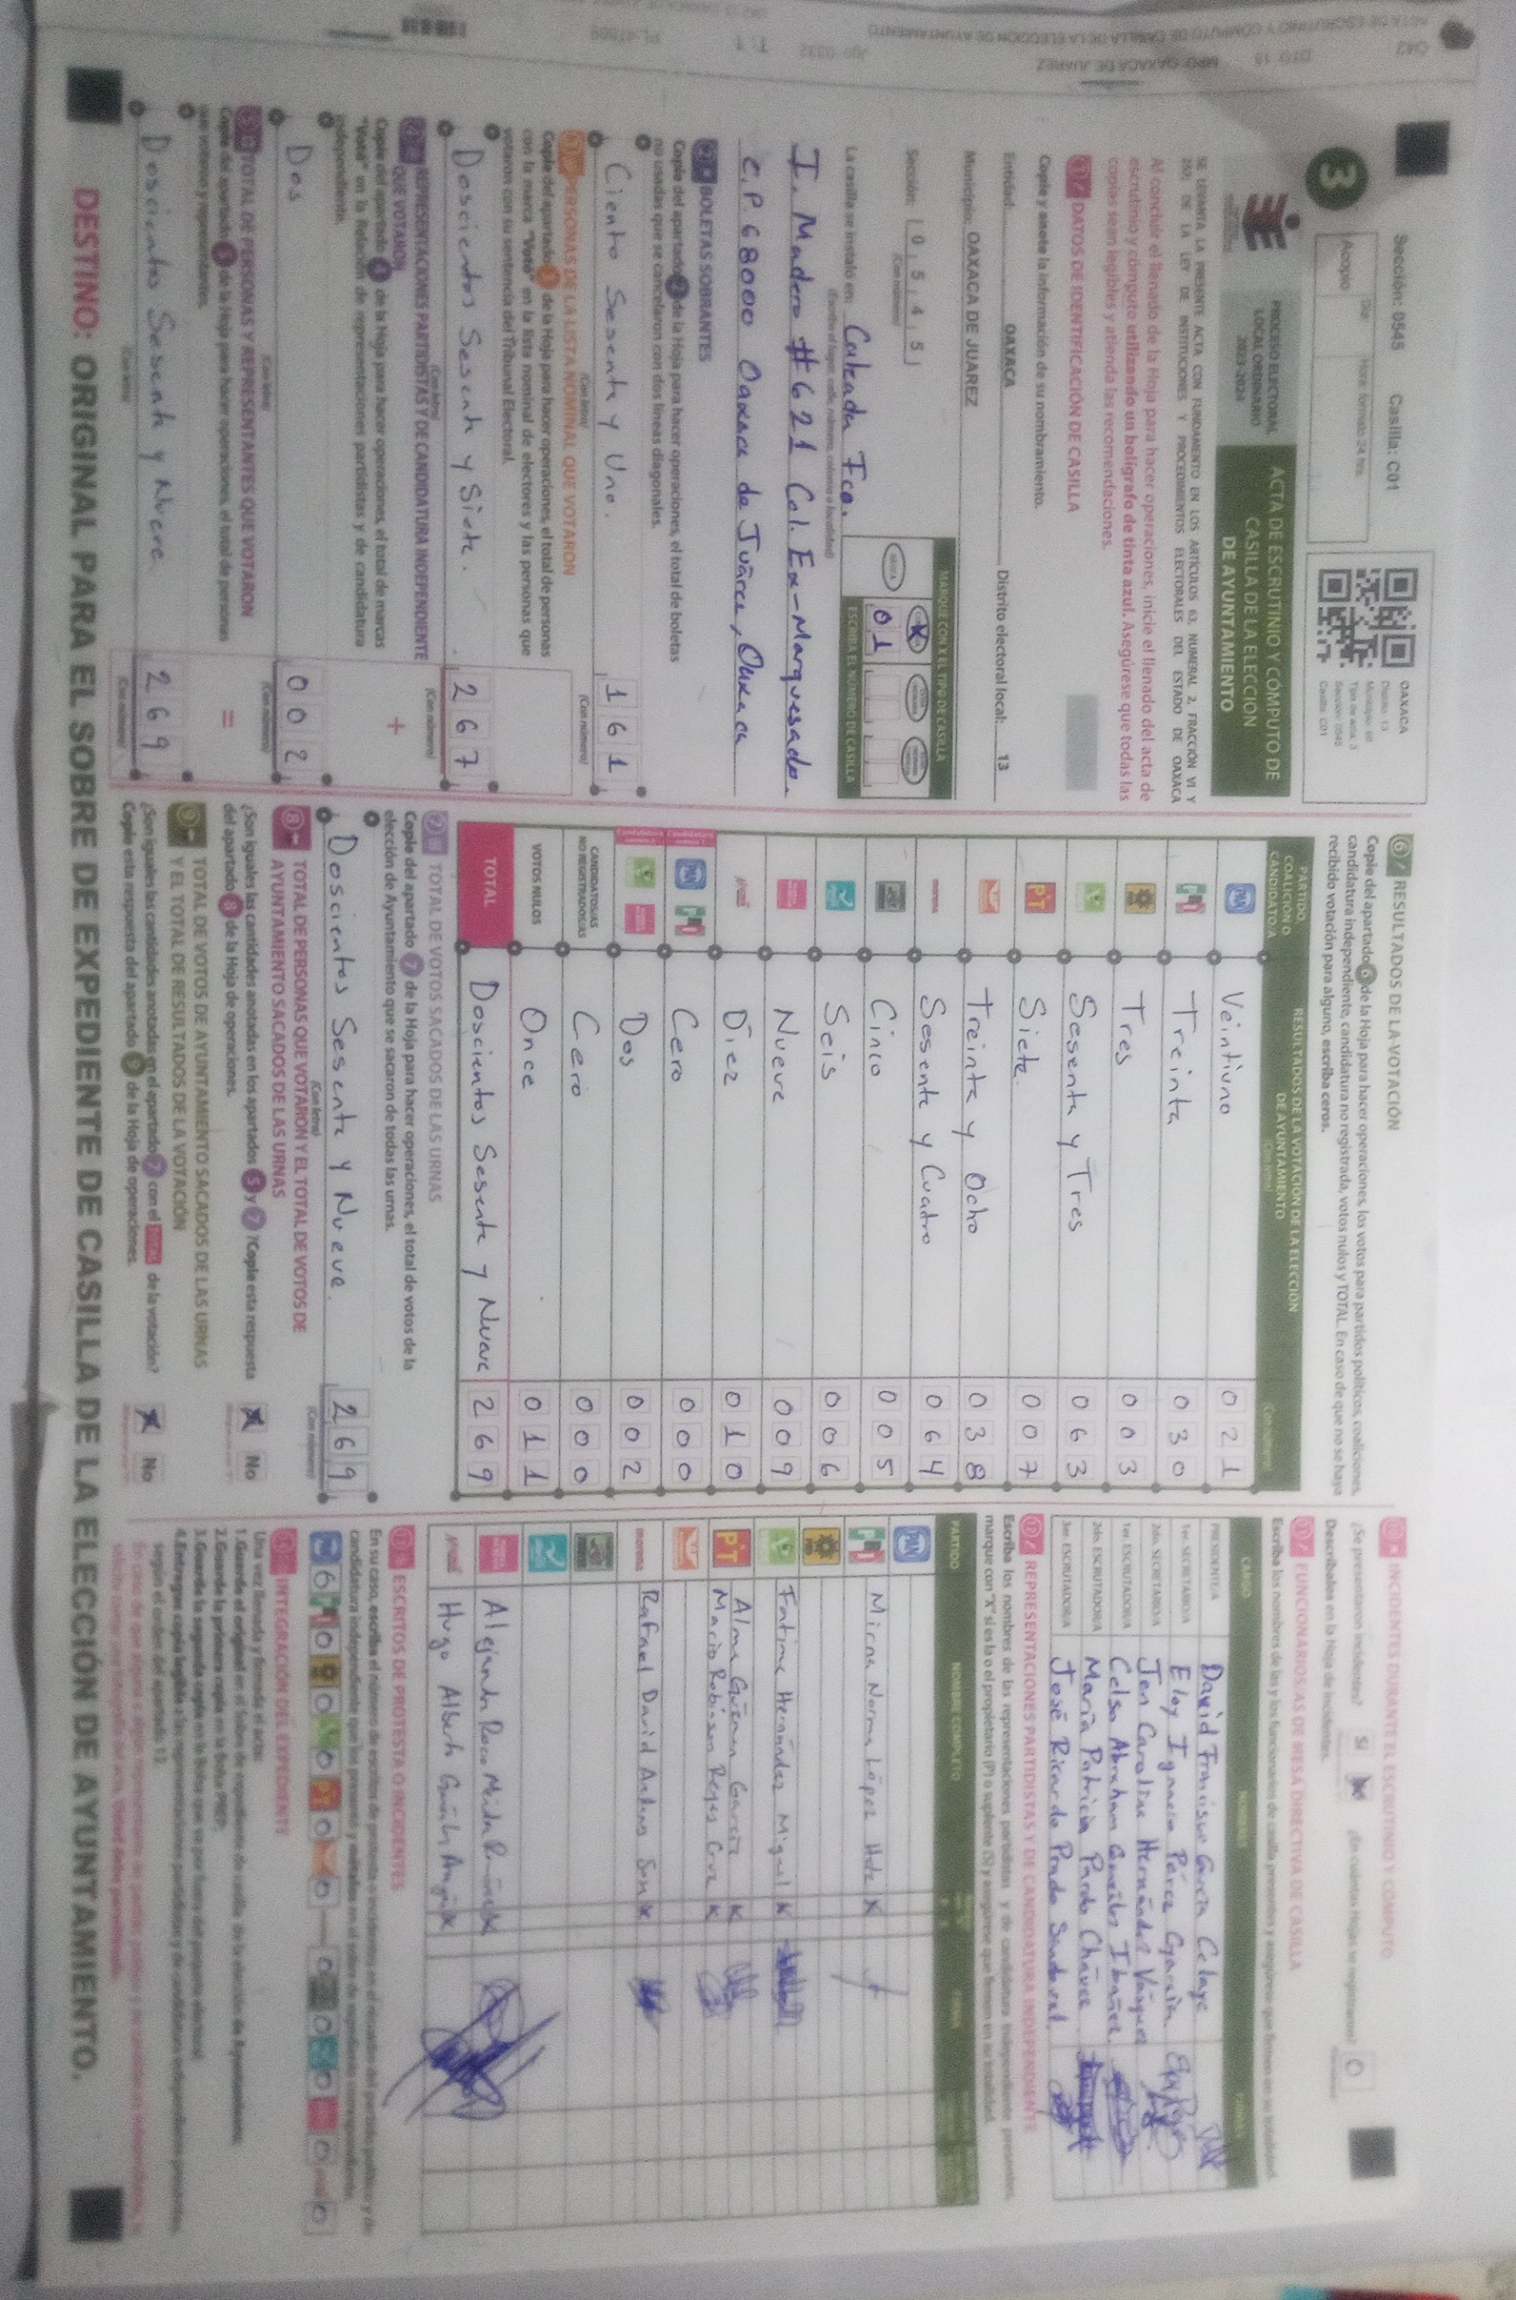 Sección: 0545 Casilla: C01
3
Acopio
Día:
Hora: formato 24 hrs.
OAXACA
Distrito: 13
Tipo de acta: 3
Sección: 0545
Casilla: C01
PROCESO ELECTORAL
LOCAL ORDINARIO
2023-2024
ACTA DE ESCRUTINIO Y CÓMPUTO DE
CASILLA DE LA ELECCIÓN
DE AYUNTAMIENTO
SE LEVANTA LA PRESENTE ACTA CON FUNDAMENTO EN LOS ARTÍCULOS 63, NUMERAL 2, FRACCIÓN VI Y
250, DE LA LEY DE INSTITUCIONES Y PROCEDIMIENTOS ELECTORALES DEL ESTADO DE OAXACA
Al concluir el llenado de la Hoja para hacer operaciones, inicie el llenado del acta de
escrutinio y cómputo utilizando un bolígrafo de tinta azul. Asegúrese que todas las
copias sean legibles y atienda las recomendaciones.
1 DATOS DE IDENTIFICACIÓN DE CASILLA
Copie y anote la información de su nombramiento.
Entidad: OAXACA Distrito electoral local: 13
Municipio: OAXACA DE JUAREZ
Sección: 0 5 4 5
(Con número)
MARQUE CON X EL TIPO DE CASILLA
X
0 1
ESCRIBA EL NÚMERO DE CASILLA
La casilla se instaló en: Calzada Fco.
(Escriba el lugar, calle, número, colonia o localidad)
I. Madero #621 Col. Ex-Marquesado.
C.P. 68000 Oaxaca de Juárez, Oaxaca
2 BOLETAS SOBRANTES
Copie del apartado 2 de la Hoja para hacer operaciones, el total de boletas
no usadas que se cancelaron con dos líneas diagonales.
Ciento Sesenta y Uno. 1 6 1
(Con letra) (Con número)
3 PERSONAS DE LA LISTA NOMINAL QUE VOTARON
Copie del apartado 3 de la Hoja para hacer operaciones, el total de personas
con la marca "Votó" en la lista nominal de electores y las personas que
votaron con su sentencia del Tribunal Electoral.
Doscientos Sesenta y Siete. 2 6 7
(Con letra) (Con número)
4 REPRESENTACIONES PARTIDISTAS Y DE CANDIDATURA INDEPENDIENTE
QUE VOTARON
+
Copie del apartado 4 de la Hoja para hacer operaciones, el total de marcas
"Votó" en la Relación de representaciones partidistas y de candidatura
independiente.
Dos 0 0 2
(Con letra) (Con número)
5 TOTAL DE PERSONAS Y REPRESENTANTES QUE VOTARON
=
Copie del apartado 5 de la Hoja para hacer operaciones, el total de personas
que votaron y representantes.
Doscientos Sesenta y Nueve 2 6 9
(Con letra) (Con número)
6 RESULTADOS DE LA VOTACIÓN
Copie del apartado 6 de la Hoja para hacer operaciones, los votos para partidos políticos, coaliciones,
candidatura independiente, candidatura no registrada, votos nulos y TOTAL. En caso de que no se haya
recibido votación para alguno, escriba ceros.
PARTIDO
COALICIÓN O
CANDIDATO/A
RESULTADOS DE LA VOTACIÓN DE LA ELECCIÓN
DE AYUNTAMIENTO
(Con letra)
(Con número)
PAN Veintiuno 0 2 1
PRI Treinta 0 3 0
Tres 0 0 3
Sesenta y Tres 0 6 3
PT Siete. 0 0 7
Treinta y Ocho 0 3 8
morena Sesenta y Cuatro 0 6 4
Cinco 0 0 5
Seis 0 0 6
Nueve 0 0 9
Diez 0 1 0
PAN PRI Cero 0 0 0
Dos 0 0 2
CANDIDATOS/AS
NO REGISTRADOS/AS Cero 0 0 0
VOTOS NULOS Once 0 1 1
TOTAL Doscientos Sesenta y Nueve 2 6 9
7 TOTAL DE VOTOS SACADOS DE LAS URNAS
Copie del apartado 7 de la Hoja para hacer operaciones, el total de votos de la
elección de Ayuntamiento que se sacaron de todas las urnas.
Doscientos Sesenta y Nueve. 2 6 9
(Con letra) (Con número)
8 TOTAL DE PERSONAS QUE VOTARON Y EL TOTAL DE VOTOS DE
AYUNTAMIENTO SACADOS DE LAS URNAS
¿Son iguales las cantidades anotadas en los apartados 5 y 7? Copie esta respuesta
del apartado 8 de la Hoja de operaciones.
X No
9 TOTAL DE VOTOS DE AYUNTAMIENTO SACADOS DE LAS URNAS
Y EL TOTAL DE RESULTADOS DE LA VOTACIÓN
¿Son iguales las cantidades anotadas en el apartado 7 con el TOTAL de la votación?
Copie esta respuesta del apartado 9 de la Hoja de operaciones.
X No
10 INCIDENTES DURANTE EL ESCRUTINIO Y CÓMPUTO
¿Se presentaron incidentes? Sí No 0
Descríbalos en la Hoja de incidentes.
11 FUNCIONARIOS/AS DE MESA DIRECTIVA DE CASILLA
Escriba los nombres de las y los funcionarios de casilla presentes y asegúrese que firmen en su totalidad.
CARGO NOMBRES FIRMAS
PRESIDENTE/A David Francisco García Celaya
1er. SECRETARIO/A Eloy Ignacio Pérez García
2do. SECRETARIO/A Jen Caroline Hernández Vásquez
1er. ESCRUTADOR/A Celso Abraham Ibañez
2do. ESCRUTADOR/A María Patricia Pardo Chávez
3er. ESCRUTADOR/A José Ricardo Prado Sandoval
12 REPRESENTACIONES PARTIDISTAS Y DE CANDIDATURA INDEPENDIENTE
Escriba los nombres de las representaciones partidistas y de candidatura independiente presentes,
marque con "X" si es la o el propietario (P) o suplente (S) y asegúrese que firmen en su totalidad.
PARTIDO NOMBRE COMPLETO FIRMA
PAN
PRI Mirna Norma López Hdz X
Fatima Hernández Miguel X
PT Alma García X
Mario Robinson Reyes Cruz X
morena Rafael David X
Alejandra X
Hugo Alberto X
13 ESCRITOS DE PROTESTA O INCIDENTES
En su caso, escriba el número de escritos de protesta o incidentes en el recuadro del partido político y de
candidatura independiente que los presentó
INTEGRACIÓN DEL EXPEDIENTE
Una vez llenada y firmada el acta:
DESTINO: ORIGINAL PARA EL SOBRE DE EXPEDIENTE DE CASILLA DE LA ELECCIÓN DE AYUNTAMIENTO.